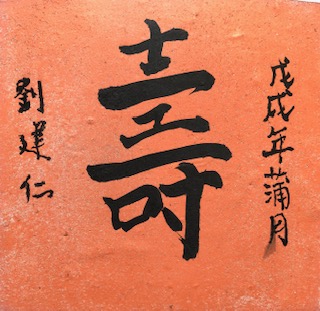 戊戌年蒲月
壽
劉建仁